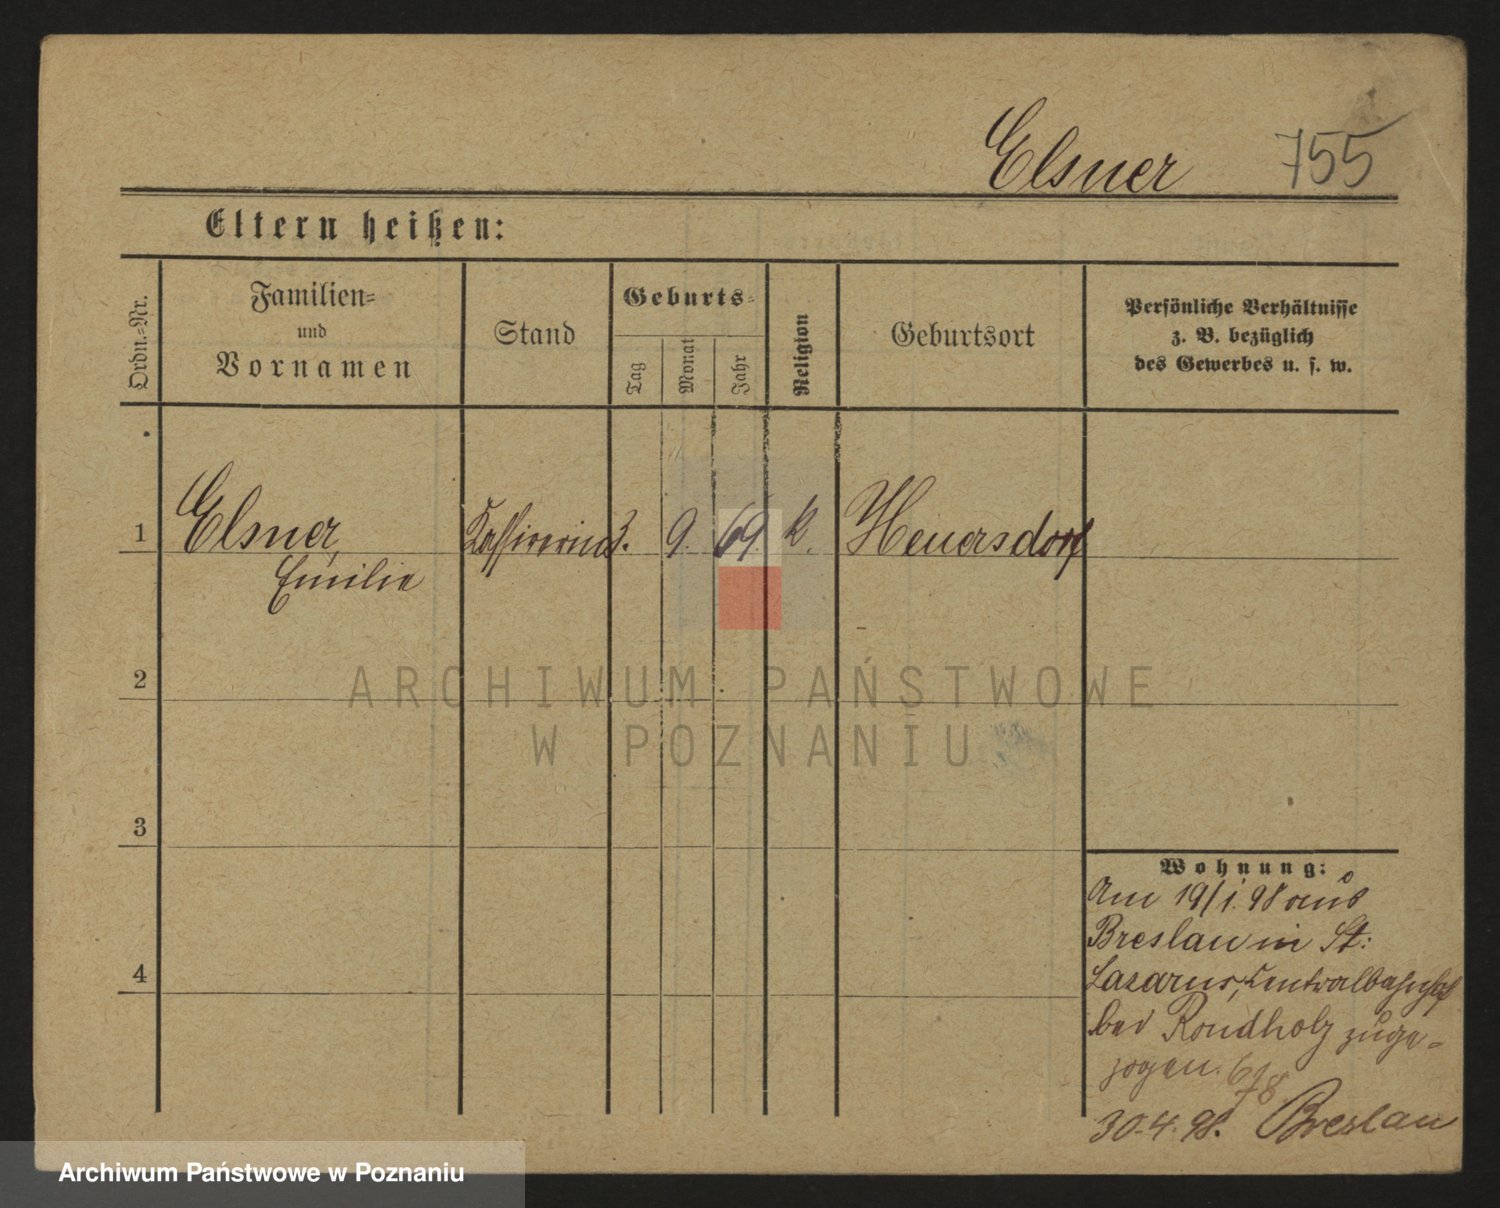 Elsner 755
Eltern heißen:
Ordn.-Nr.
Familien-
und
Vornamen
Stand
Geburts-
Tag
Monat
Jahr
Religion
Geburtsort
Persönliche Verhältnisse
z. B. bezüglich
des Gewerbes u. s. w.
1 Elsner, Kassirerin 3. 9. 69. k. Heuersdorf
Emilie
2
ARCHIWUM PAŃSTWOWE
W POZNANIU
3
Wohnung:
Am 19/1. 98 aus
Breslau in St:
4
Lazarus, Centralbahnhof
bei Rondholz zuge-
zogen.
30.4.98. Breslau
Archiwum Państwowe w Poznaniu